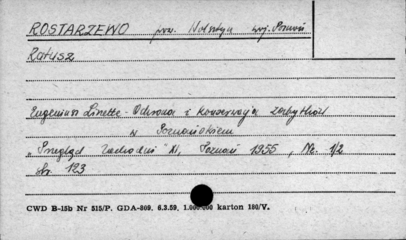 ROSTARZEWO pow. Wolsztyn woj. Poznań
Ratusz
Eugeniusz Linette - Ochrona i konserwacja zabytków
w Poznańskiem
"Przegląd Zachodni" N, Poznań 1955, Nr. 1/2
str. 123
CWD B-15b Nr 515/P. GDA-809. 6.3.59, 1.000.000 karton 180/V.